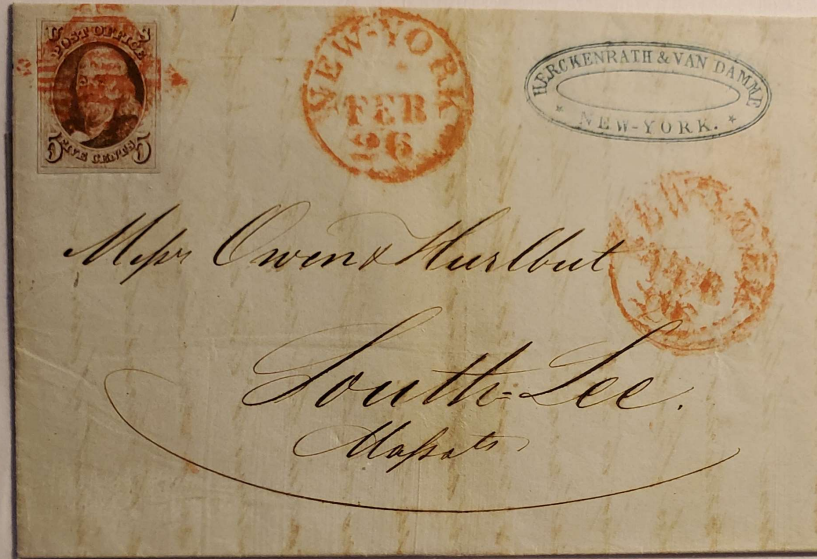 U S
POST OFFICE
5 FIVE CENTS 5
NEW-YORK
FEB
26
HERCKENRATH & VAN DAMME
* NEW-YORK. *
NEW-YORK
FEB
26
Messrs Owen & Hurlbut
South=Lee.
Massts